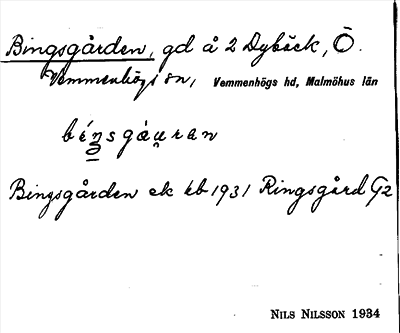 Bingsgården, gd å 2 Dybäck, Ö.
Vemmenhögs sn, Vemmenhögs hd, Malmöhus län
Bingsgården ek kb 1931 Ringsgård G2
NILS NILSSON 1934